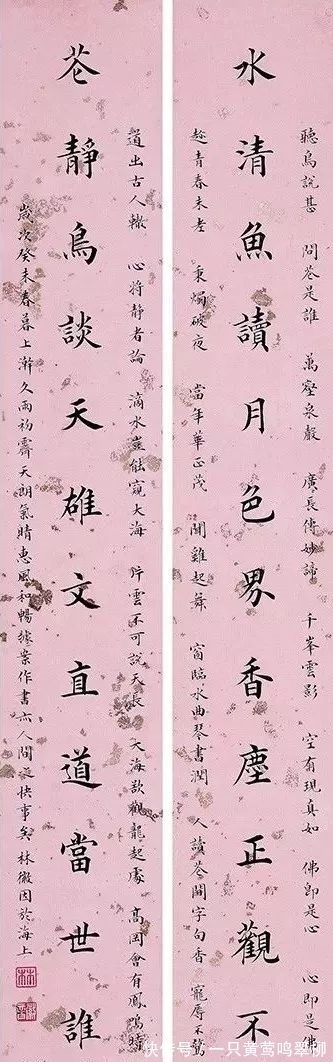 聽鳥說甚 問花是誰 萬壑泉聲 廣長傳妙諦 千峯雲影 空有現真如 佛即是心 心即是佛
水清魚讀月色界香塵正觀不
趁青春未老 秉燭破夜 當年華正茂 聞雞起舞 窗臨水曲琴書潤 人讀花間字句香 寵辱不
道出古人轍 心將靜者論 滴水豈能窺大海 片雲不可說天長 大海欲觀龍起處 高岡會有鳳鳴時
花靜鳥談天雄文直道當世誰
歲次癸未春暮上澣久雨初霽天朗氣晴惠風和暢據案作書亦人間一快事矣林徽因於海上
快传号/一只黄莺鸣翠柳